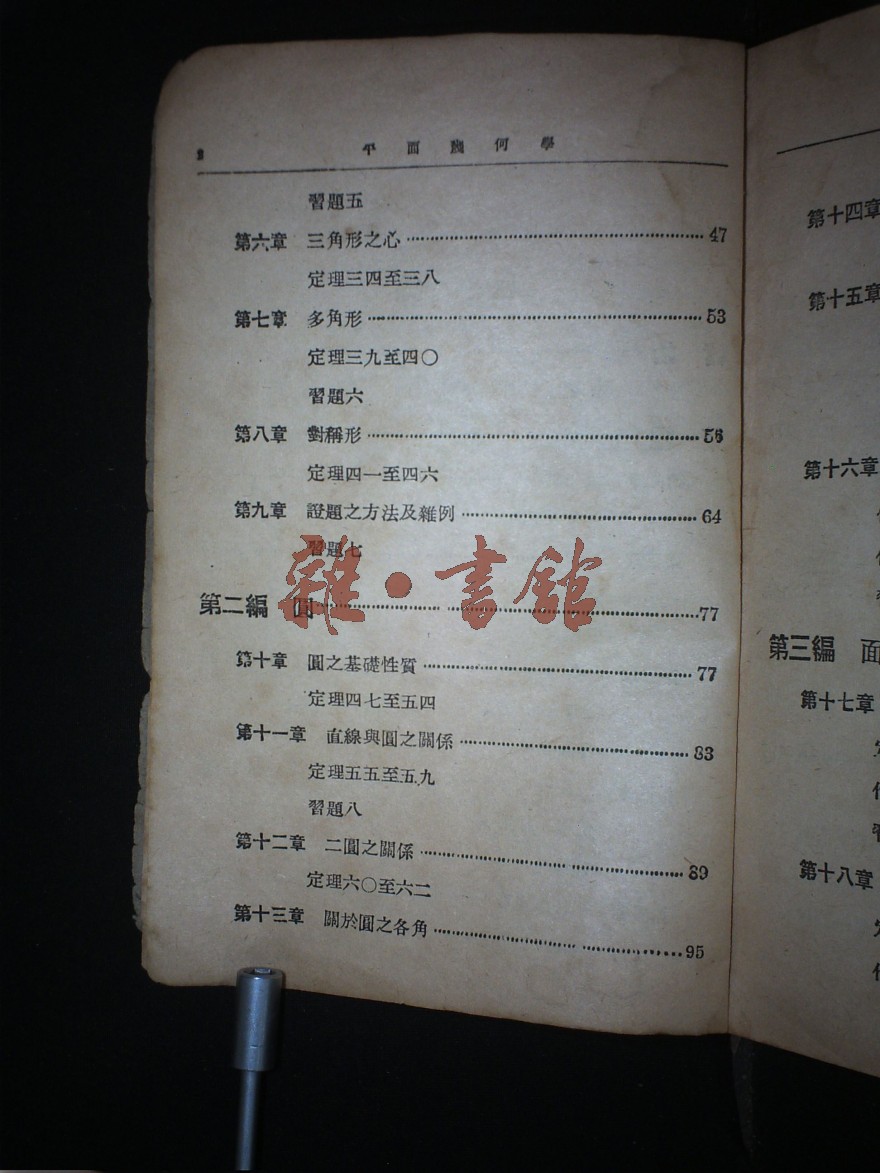 2 平面幾何學
習題五
第六章 三角形之心 47
定理三四至三八
第七章 多角形 53
定理三九至四〇
習題六
第八章 對稱形 56
定理四一至四六
第九章 證題之方法及雜例 64
習題七
雜·書館
第二編 圓 77
第十章 圓之基礎性質 77
定理四七至五四
第十一章 直線與圓之關係 83
定理五五至五九
習題八
第十二章 二圓之關係 89
定理六〇至六二
第十三章 關於圓之各角 95
第十四章
第十五章
第十六章
第三編 面
第十七章
第十八章